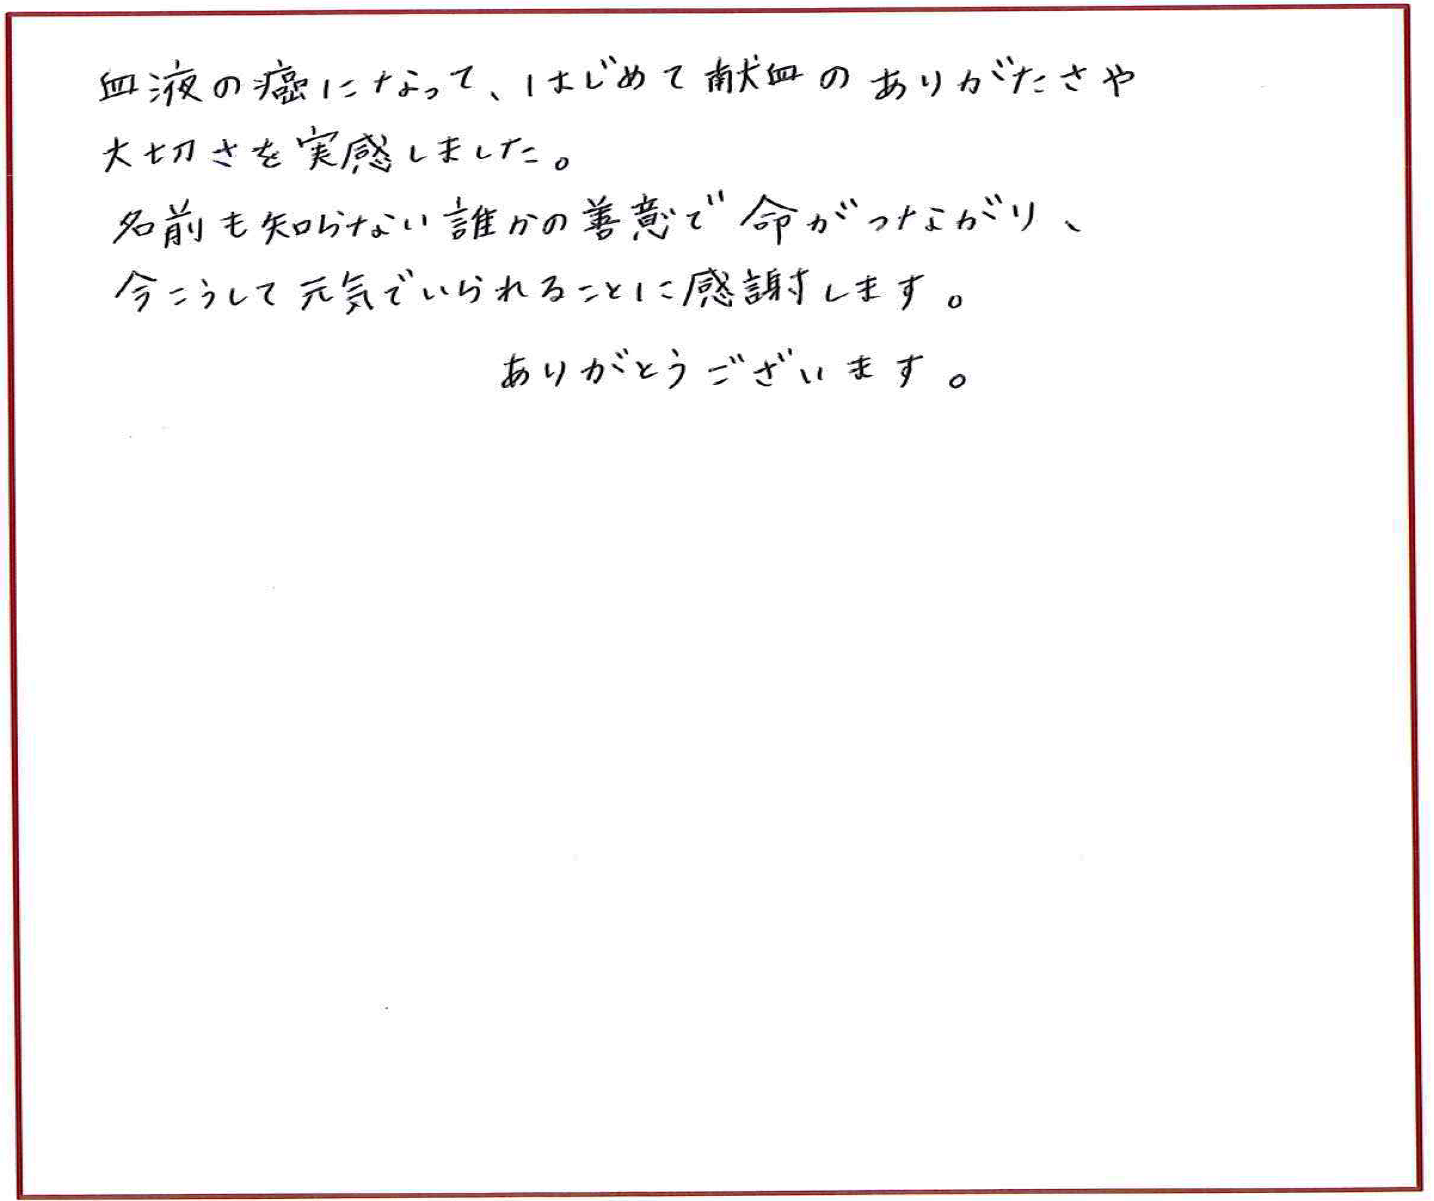 血液の癌になって、はじめて献血のありがたさや
大切さを実感しました。
名前も知らない誰かの善意で命がつながり、
今こうして元気でいられることに感謝します。
ありがとうございます。